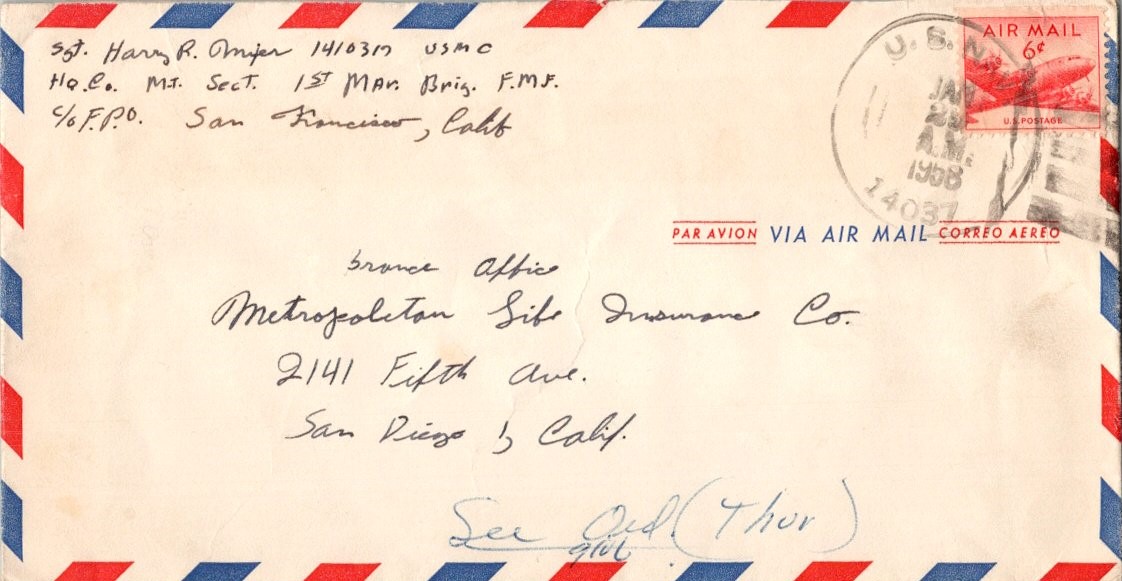 Sgt. Harry R. 1410317 USMC
Hq. Co. M.T. Sect. 1st Mar. Brig. F.M.F.
c/o F.P.O. San Francisco, Calif
U.S. NAVY
JAN
A.M.
1958
14037
AIR MAIL
6¢
U.S. POSTAGE
PAR AVION VIA AIR MAIL CORREO AEREO
Office
Metropoletan Life Insurance Co.
2141 Fifth Ave.
San Diego 1, Calif.
See Ord. (Thor)